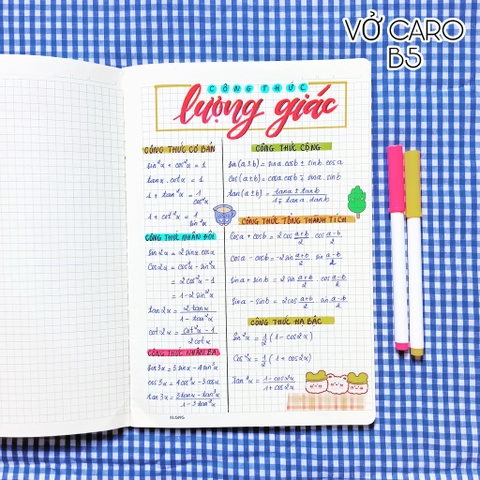 VỞ CARO
B5
CÔNG THỨC
lượng giác
CÔNG THỨC CƠ BẢN
sin²x + cos²x = 1
tanx . cotx = 1
1 + tan²x = 1/cos²x
1 + cot²x = 1/sin²x
CÔNG THỨC NHÂN ĐÔI
sin2x = 2sinx cosx
cos2x = cos²x - sin²x
= 2cos²x - 1
= 1 - 2sin²x
tan2x = 2tanx/1 - tan²x
cot2x = cot²x - 1/2cotx
CÔNG THỨC NHÂN BA
sin3x = 3sinx - 4sin³x
cos3x = 4cos³x - 3cosx
tan3x = 3tanx - tan³x/1 - 3tan²x
CÔNG THỨC CỘNG
sin(a±b) = sina cosb ± sinb cosa
cos(a±b) = cosa cosb ∓ sina . sinb
tan(a±b) = tana ± tanb/1 ∓ tana . tanb
CÔNG THỨC TỔNG THÀNH TÍCH
cosa + cosb = 2cos a+b/2 cos a-b/2
cosa - cosb = -2sin a+b/2 sin a-b/2
sina + sinb = 2sin a+b/2 cos a-b/2
sina - sinb = 2cos a+b/2 sin a-b/2
CÔNG THỨC HẠ BẬC
sin²x = 1/2 (1 - cos2x)
cos²x = 1/2 (1 + cos2x)
tan²x = 1 - cos2x/1 + cos2x